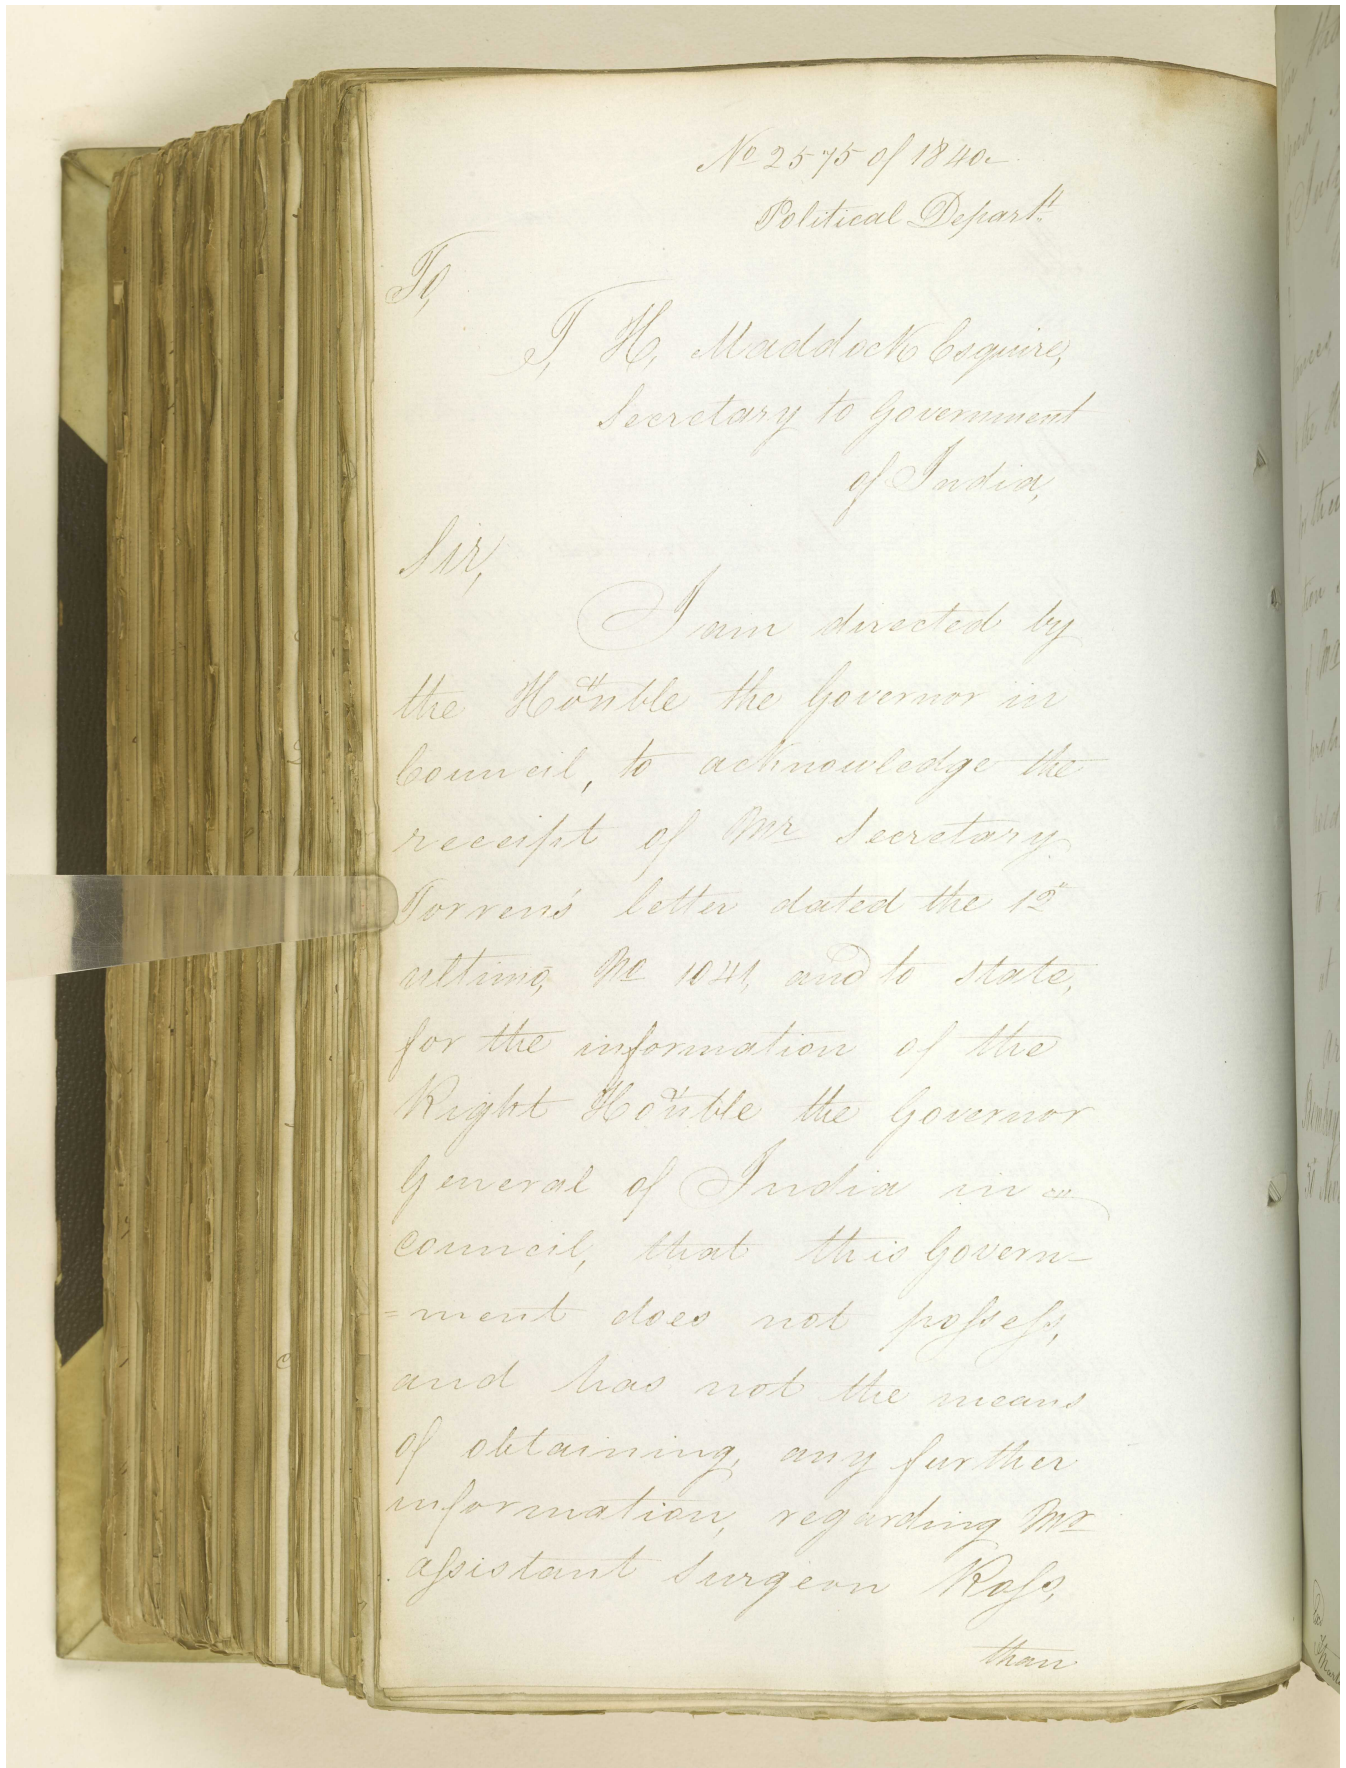 No 2575 of 1840.
Political Depart.tt
To,
T, H, Maddock Esquire,
Secretary to Government
of India,
Sir,
I am directed by
the Honble the Governor in
Council, to acknowledge the
receipt of Mr Secretary
Torrens' letter dated the
ultimo, No 1041, and to state,
for the information of the
Right Honble the Governor
General of India in
council, that this Govern-
=ment does not possess,
and has not the means
of obtaining, any further
information, regarding Mr
assistant Surgeon Ross,
than